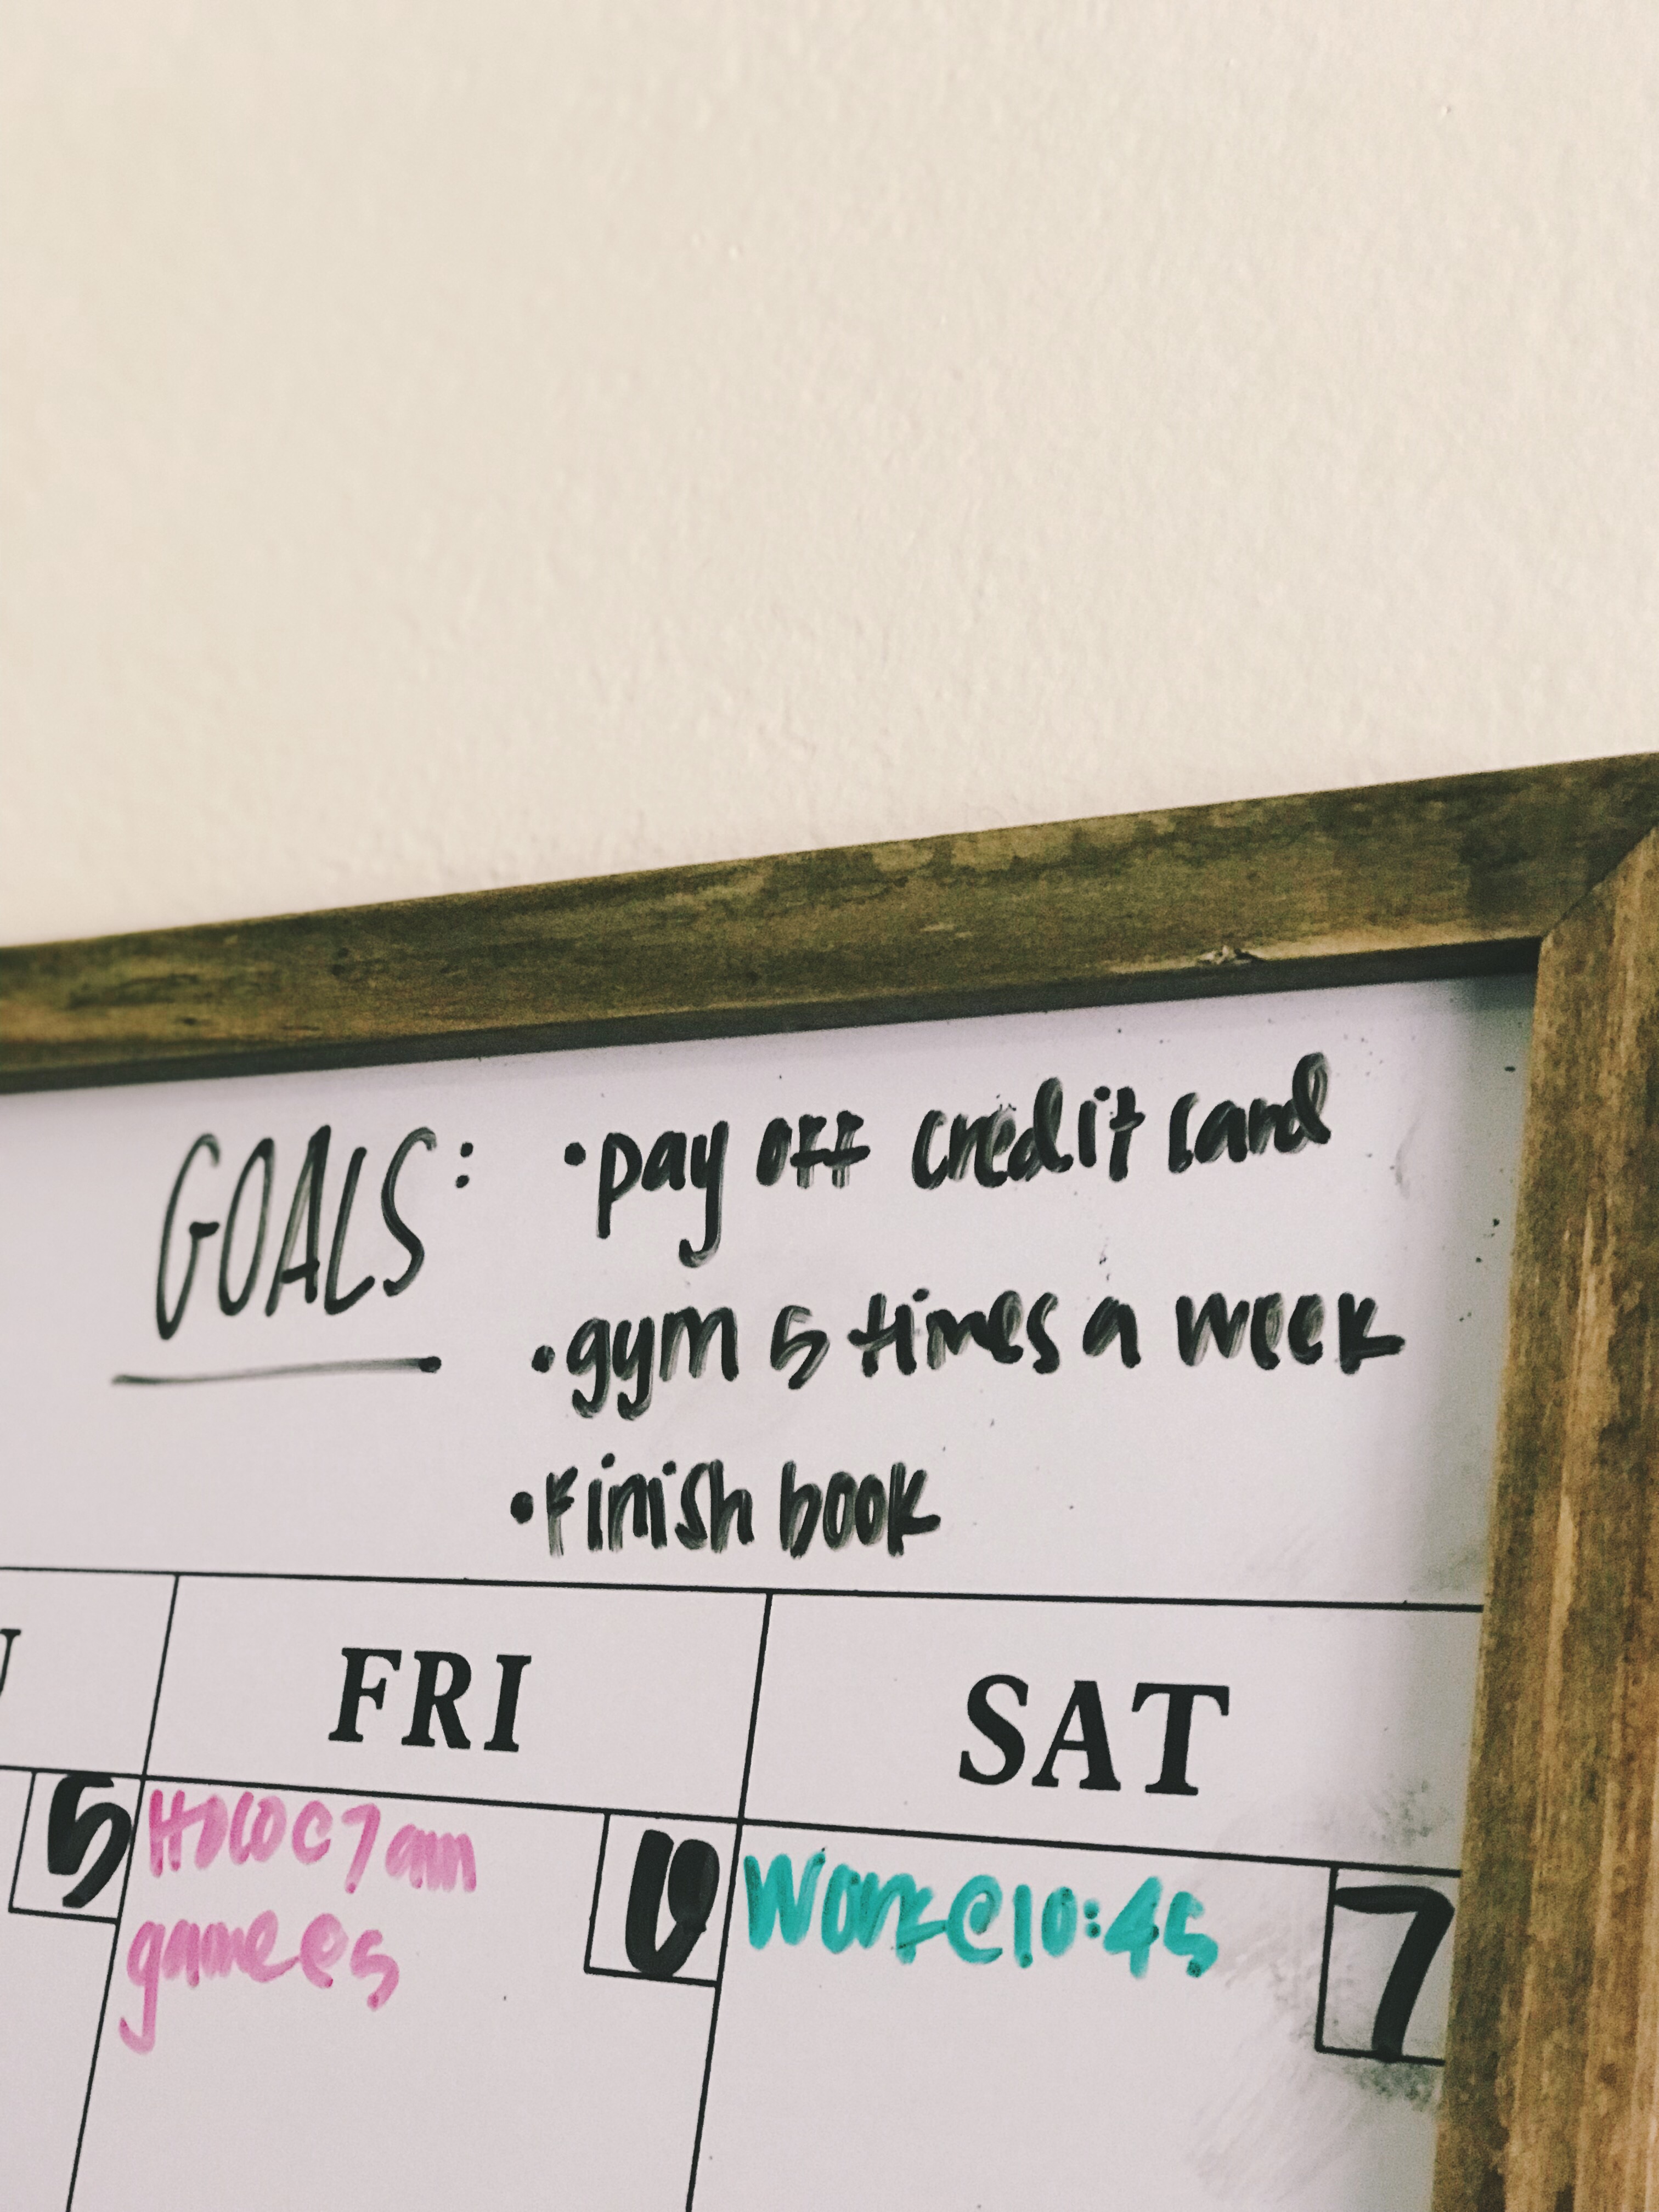 GOALS: • pay off credit card
• gym 5 times a week
• Finish book
FRI SAT
5 6 7
7am
game @ 5
Work @ 10:45